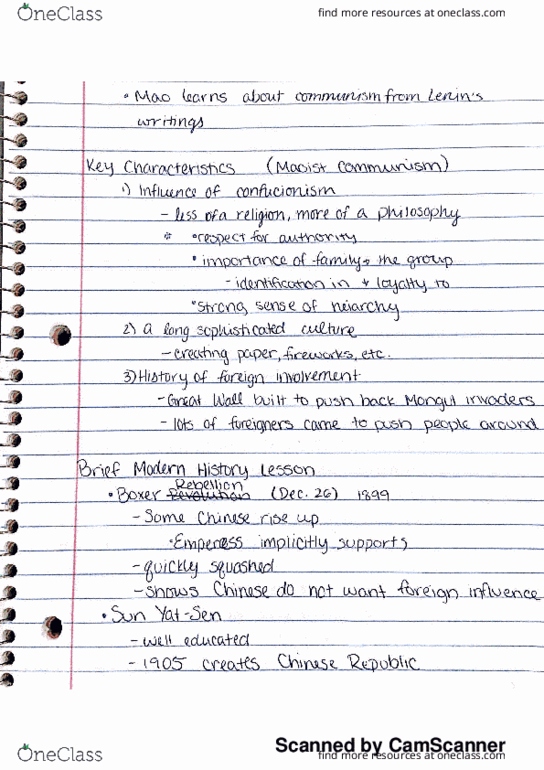 OneClass find more resources at oneclass.com
• Mao learns about communism from Lenin's
writings
Key Characteristics (Maoist Communism)
1) Influence of confucionism
- less of a religion, more of a philosophy
* •respect for authority
• importance of family + the group
- identification in + loyalty to
•strong sense of heiarchy
2) a long sophisticated culture
- creating paper, fireworks, etc.
3) History of foreign involvement
- Great Wall built to push back Mongul invaders
- lots of foreigners came to push people around
Brief Modern History Lesson
Rebellion
• Boxer Revolution (Dec. 26) 1899
- Some Chinese rise up
•Emperess implicitly supports
- quickly squashed
- shows Chinese do not want foreign influence
• Sun Yat-Sen
- well educated
- 1905 creates Chinese Republic
Scanned by CamScanner
OneClass find more resources at oneclass.com